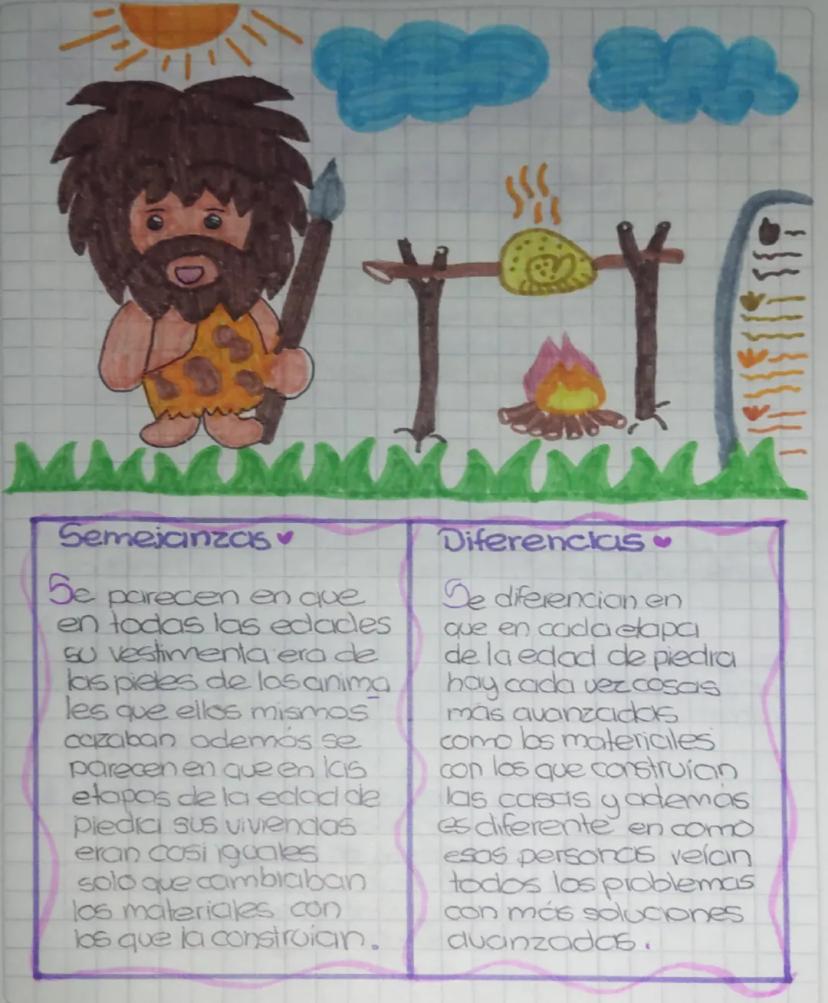 Semejanzas
Se parecen en que
en todas las edades
su vestimenta era de
las pieles de los anima
les que ellos mismos
cazaban además se
parecen en que en las
etapas de la edad de
piedra sus viviendas
eran casi iguales
solo que cambiaban
los materiales con
los que la construian.
Diferencias
Se diferencian en
que en cada etapa
de la edad de piedra
hay cada vez cosas
más avanzadas
como los materiales
con los que construían
las casas y además
es diferente en como
esas personas veían
todos los problemas
con más soluciones
avanzadas.